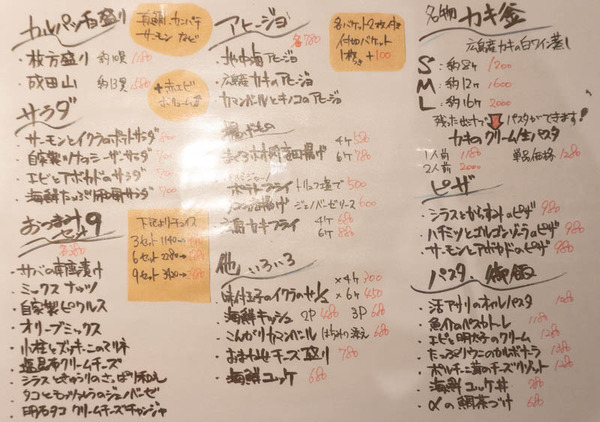 カルパッチョ盛り
枚方盛り 約10貫 1180
成田山 約13貫 1580
真鯛 カンパチ
サーモン など
+赤エビ
サラダ
サーモンとイクラのポテトサラダ
自家製ツナのシーザーサラダ 700
エビとアボカドのサラダ 700
海鮮たっぷり和風サラダ 900
おつまみ9
セット
各380
下記よりチョイス
3セット 1140→
6セット 2280→
9セット 3420→
・サバの南蛮漬け
・ミックスナッツ
・自家製ピクルス
・オリーブミックス
・小柱とズッキーニのマリネ
・塩昆布クリームチーズ
・シラスときゅうりのさっぱり和え
・タコともっつぁりらのジェノベーゼ
・明石タコ クリームチーズチャンジャ
アヒージョ
各780
各バケット2枚付き
追加バケット
1枚 +100
・地中海アヒージョ
・広島産カキのアヒージョ
・カマンベールとキノコのアヒージョ
揚げもの
4ケ 580
6ケ 780
ポテトフライ トリュフ塩で 500
ジェノベーゼソース 600
広島カキフライ 4ケ 680
6ケ 880
他、いろいろ
・味付玉子のイクラのせ ×4ケ 300
×6ケ 450
・海鮮キッシュ 2P 480 3P 680
・こんがりカマンベール はちみつ添え 680
・おまかせチーズ盛り 780
・海鮮ユッケ 680
名物 カキ釜
広島産カキの白ワイン蒸し
S:約8ケ 1200
M:約12ケ 1600
L:約16ケ 2000
残った出汁で パスタができます!
カキのクリーム生パスタ
1人前 1180 単品価格 1280
2人前 2000
ピザ
・シラスとからすみのピザ 980
・ハチミツとゴルゴンゾーラのピザ 980
・サーモンとアボカドのピザ 980
パスタ・御飯
・活アサリのオイルパスタ 1080
・魚介のペスカトーレ 1180
・エビと明太子のクリーム 1280
・たっぷりウニのカルボナーラ 1280
・ポルチーニ茸のチーズリゾット 1280
・海鮮ユッケ丼 980
・αの鯛茶づけ 680